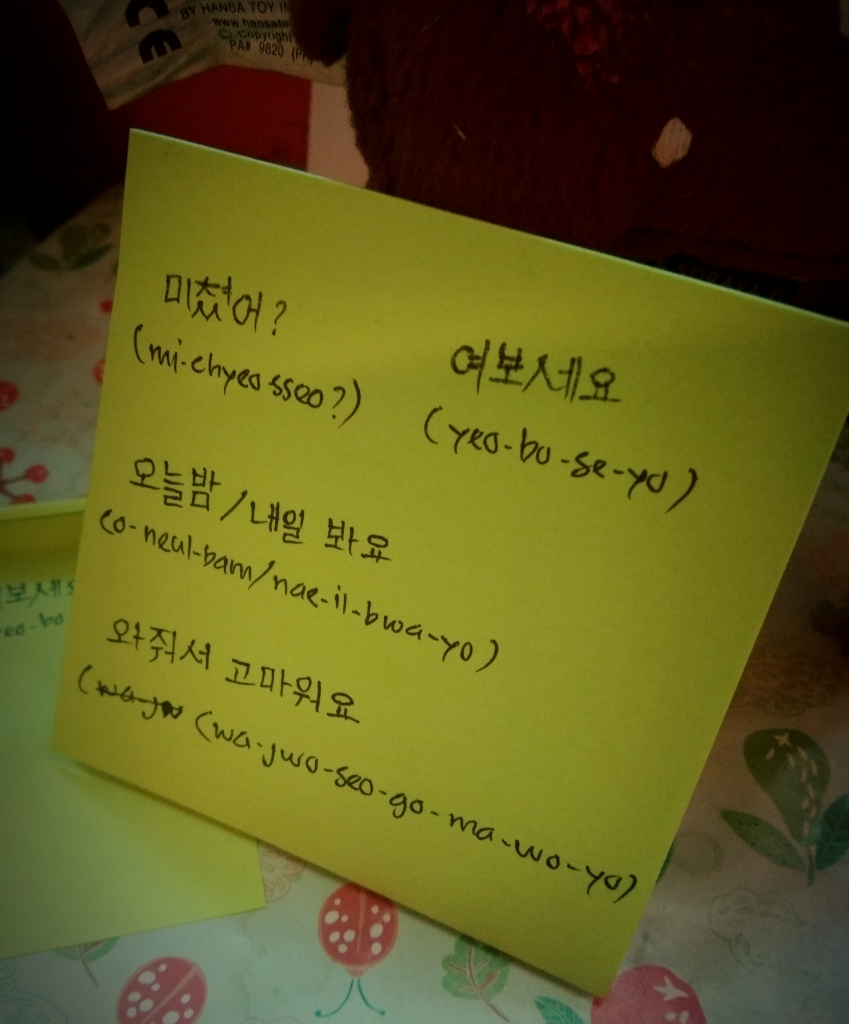 BY HANSA TOY IN
www.hansato
© Copyright
PA# 9820 (P
CE
미쳤어?
(mi-chyeo-sseo?)
여보세요
(yeo-bo-se-yo)
오늘밤/내일 봐요
(o-neul-bam/nae-il-bwa-yo)
와줘서 고마워요
(wa-jw (wa-jwo-seo-go-ma-wo-yo)
보세
eo-bo